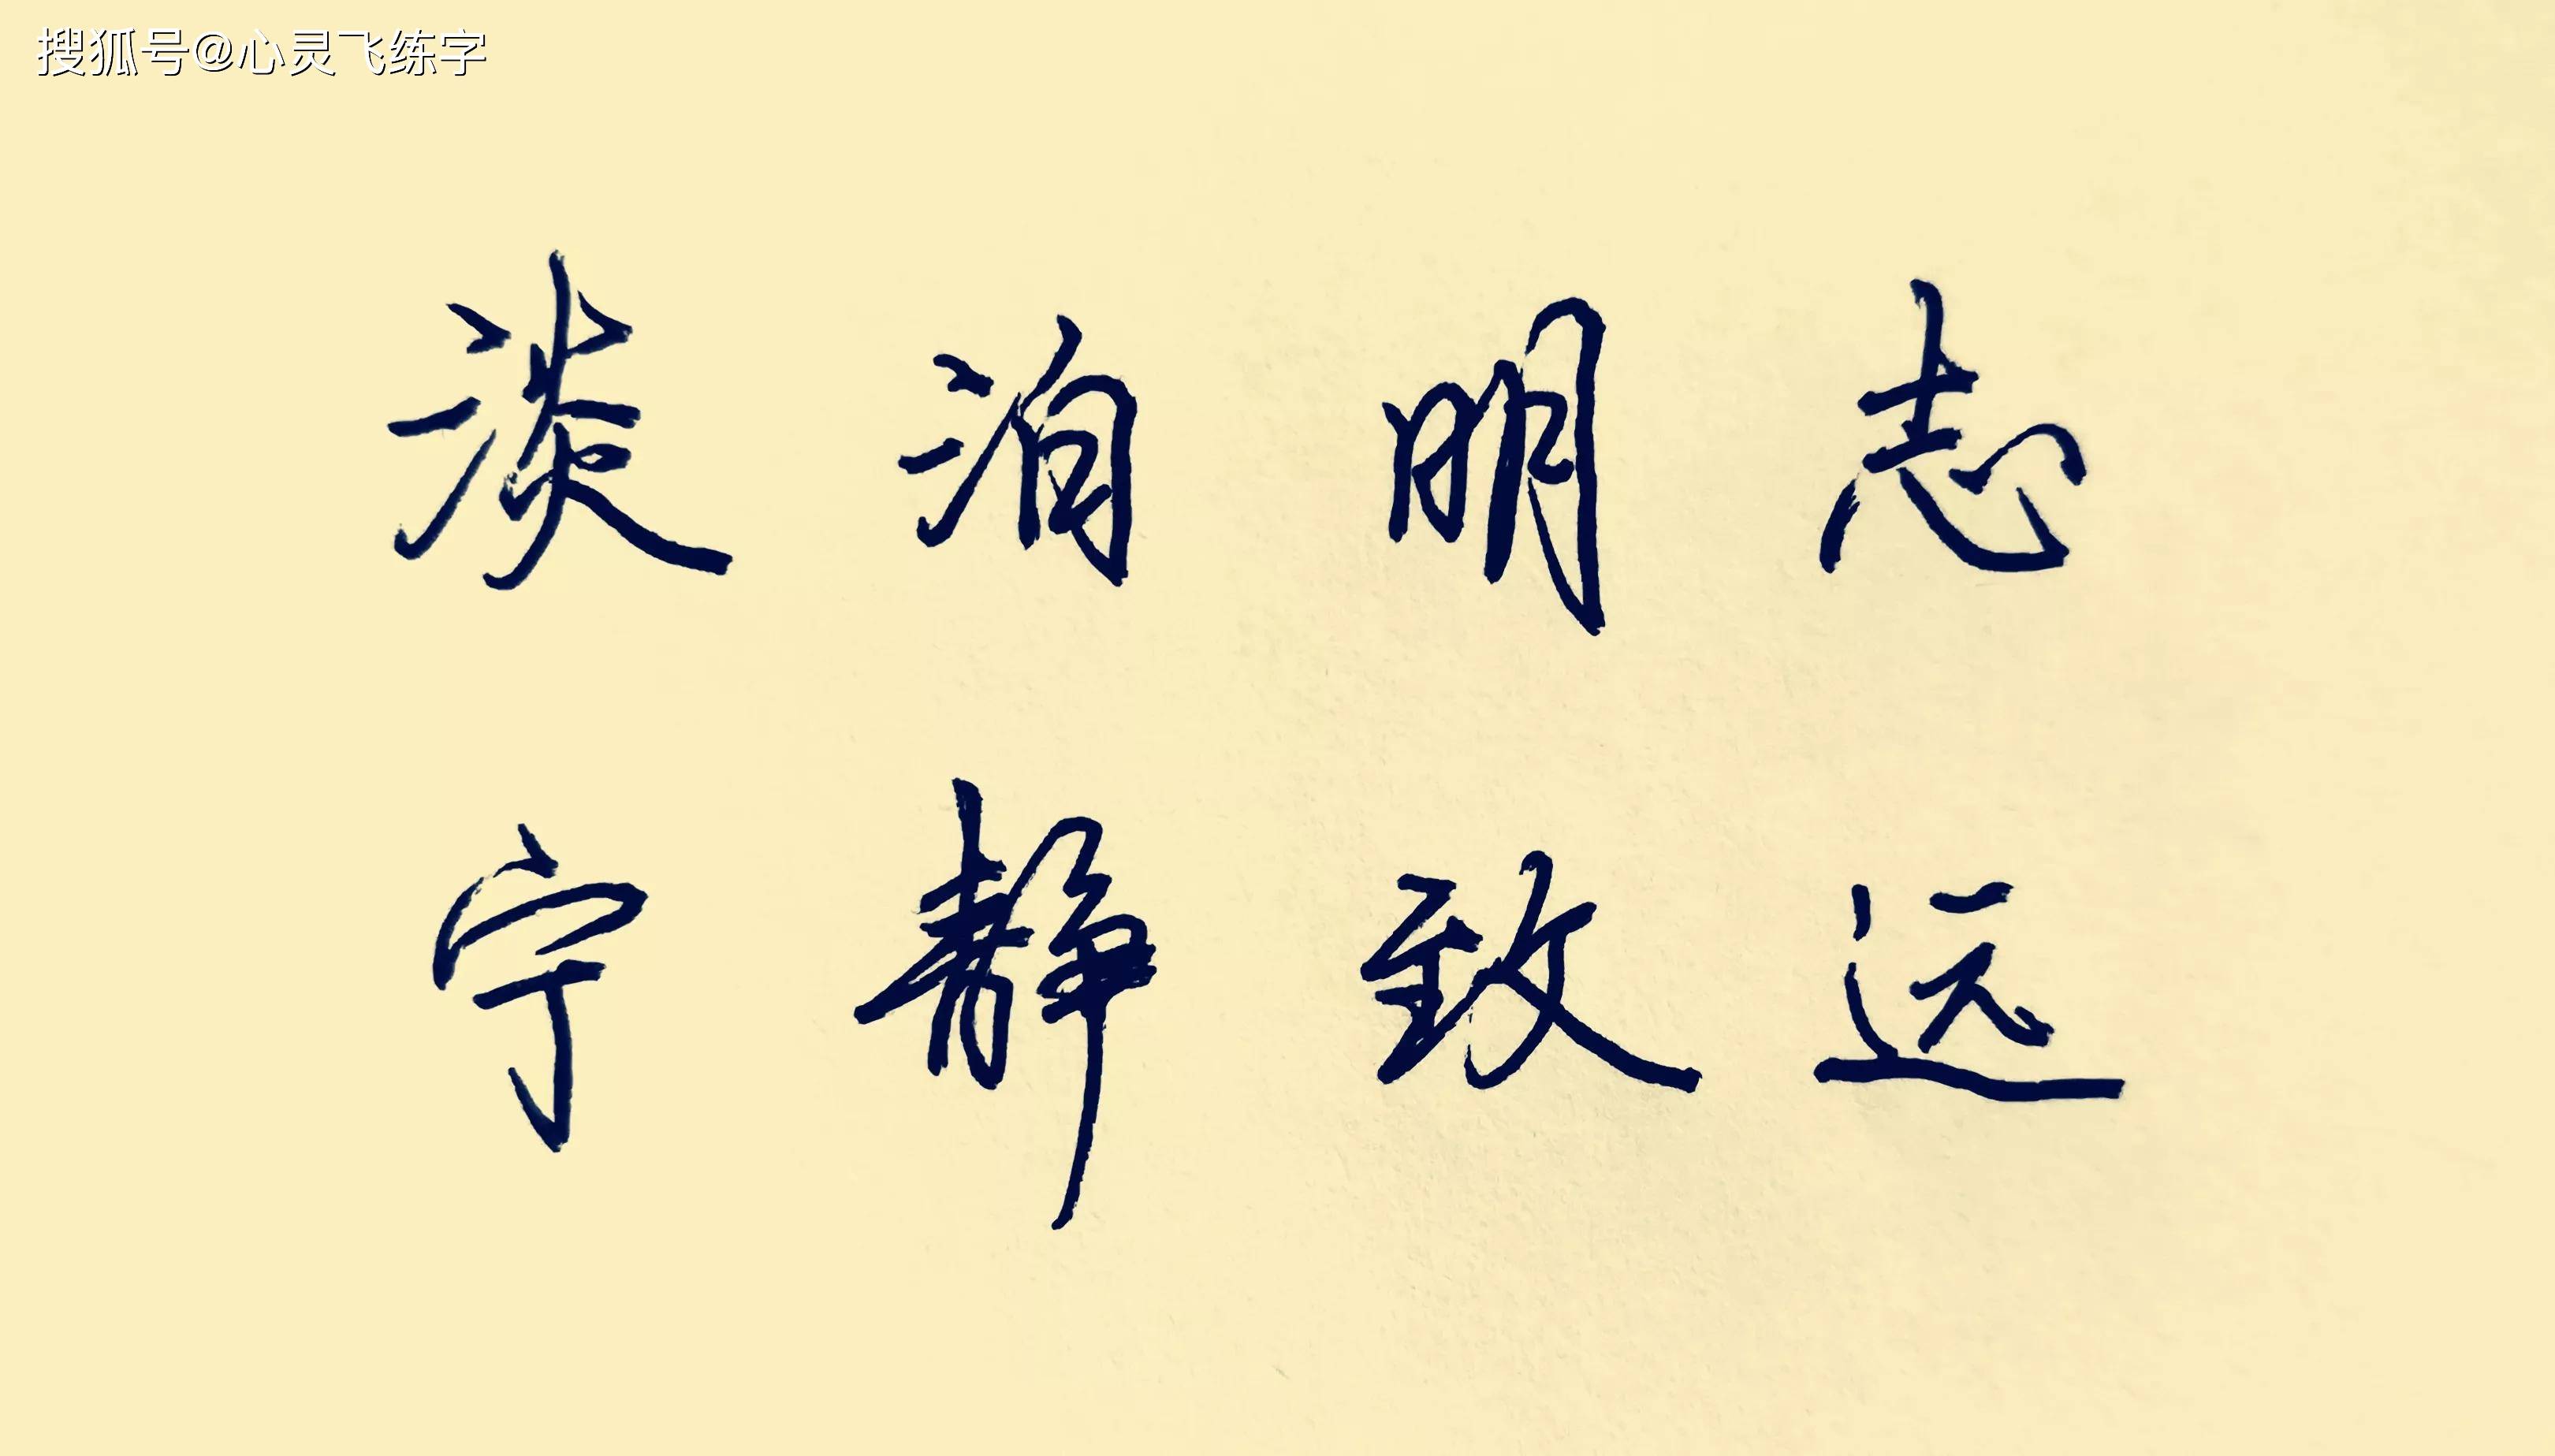 搜狐号@心灵飞练字
淡泊明志
宁静致远